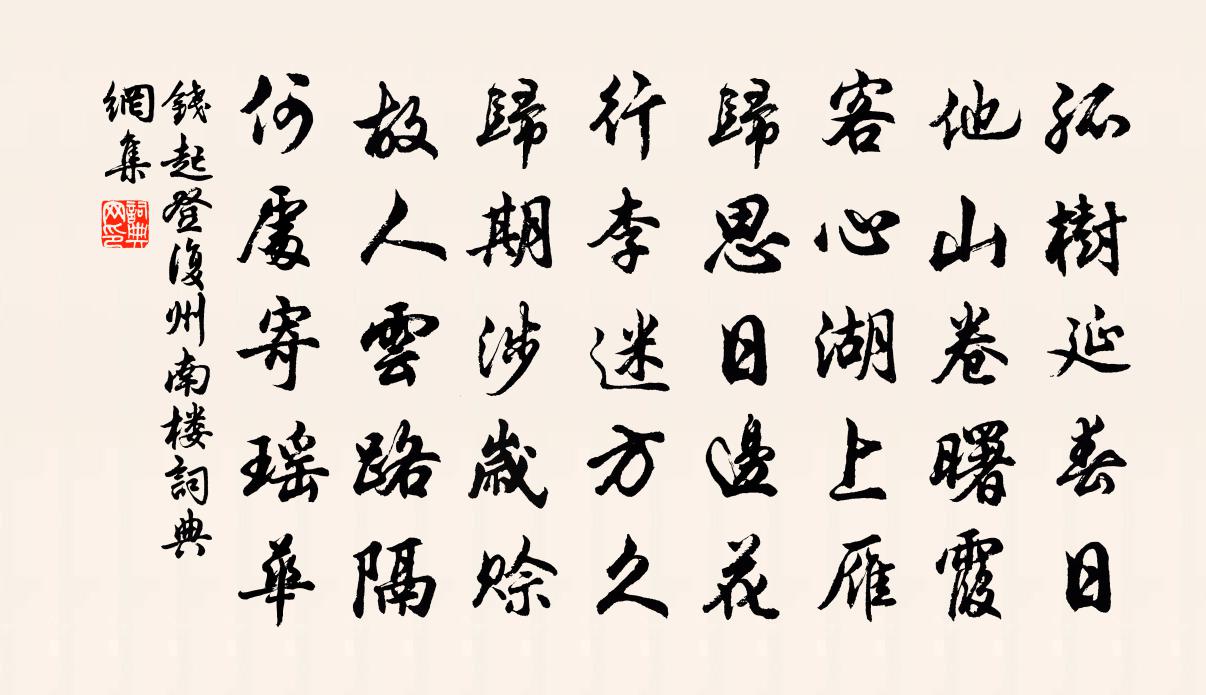 孤樹延春日
他山卷曙霞
客心湖上雁
歸思日邊花
行李迷方久
歸期涉歲賒
故人雲路隔
何處寄瑶華
錢起登復州南楼詞典
網集
詞典
网印